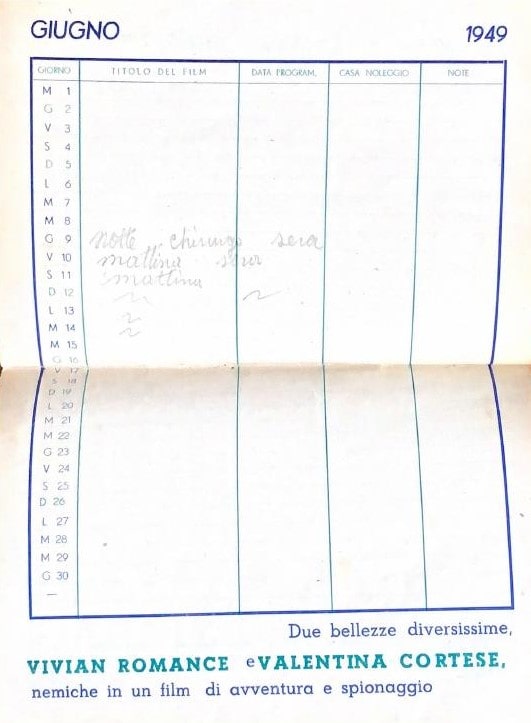 GIUGNO 1949
GIORNO TITOLO DEL FILM DATA PROGRAM. CASA NOLEGGIO NOTE
M 1
G 2
V 3
S 4
D 5
L 6
M 7
M 8
G 9 notte sera
V 10 mattina sera
S 11 mattina
D 12
L 13
M 14
M 15
G 16
V 17
S 18
D 19
L 20
M 21
M 22
G 23
V 24
S 25
D 26
L 27
M 28
M 29
G 30
—
Due bellezze diversissime,
VIVIAN ROMANCE e VALENTINA CORTESE,
nemiche in un film di avventura e spionaggio